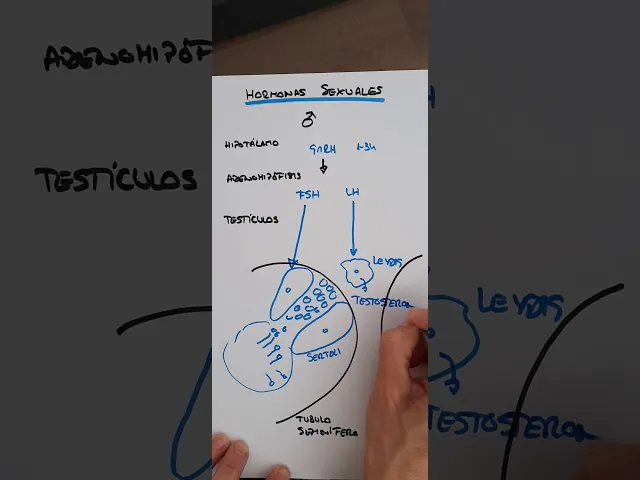 HORMONAS SEXUALES
♂
HIPOTÁLAMO GnRH 1-3h
ADENOHIPÓFISIS
FSH LH
TESTÍCULOS
LEYDIG
TESTOSTERON
SERTOLI
TUBULO
SEMINÍFERO
ADENOHIPÓF
H
TESTÍCULOS
LEYDIG
TESTOSTERON